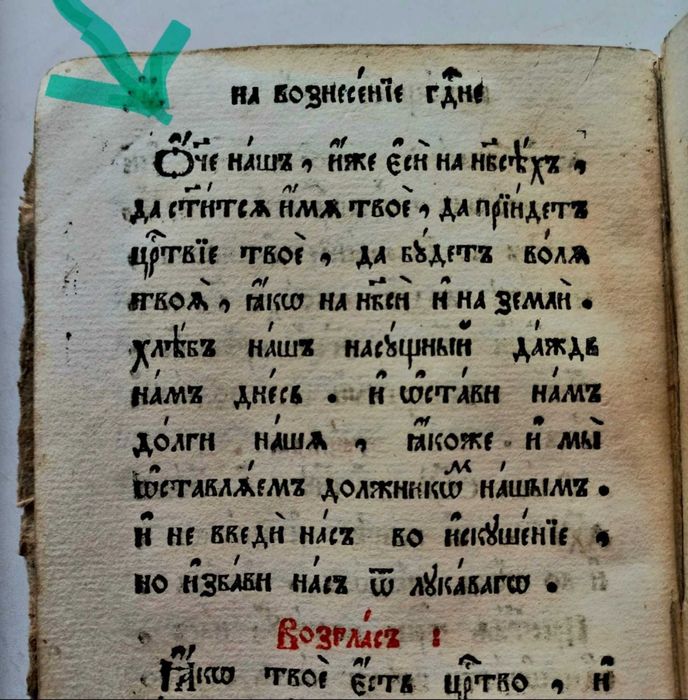 на вознесе́нїе гдⷭ҇не
Ѻ҆́ч҃е на́шъ , и҆́же є҆сѝ на нб҃сѣ́хъ ,
да ст҃и́тсѧ и҆́мѧ твоѐ , да прїи́детъ
црⷭ҇твїе твоѐ , да бꙋ́детъ во́лѧ
твоѧ̀ , ꙗ҆́кѡ на нб҃сѝ и҆ на землѝ .
хлѣ́бъ на́шъ насꙋ́щный да́ждь
на́мъ дне́сь . и҆ ѡ҆ста́ви на́мъ
до́лги на́шѧ , ꙗ҆́коже и҆ мы̀
ѡ҆ставлѧ́емъ должникѡ́ⷨ на́шымъ .
и҆ не введѝ на́съ во и҆скꙋше́нїе ,
но и҆зба́ви на́съ ѿ лꙋка́вагѡ .
Возгла́съ :
Ꙗ҆́кѡ твоѐ є҆́сть црⷭ҇тво , и҆